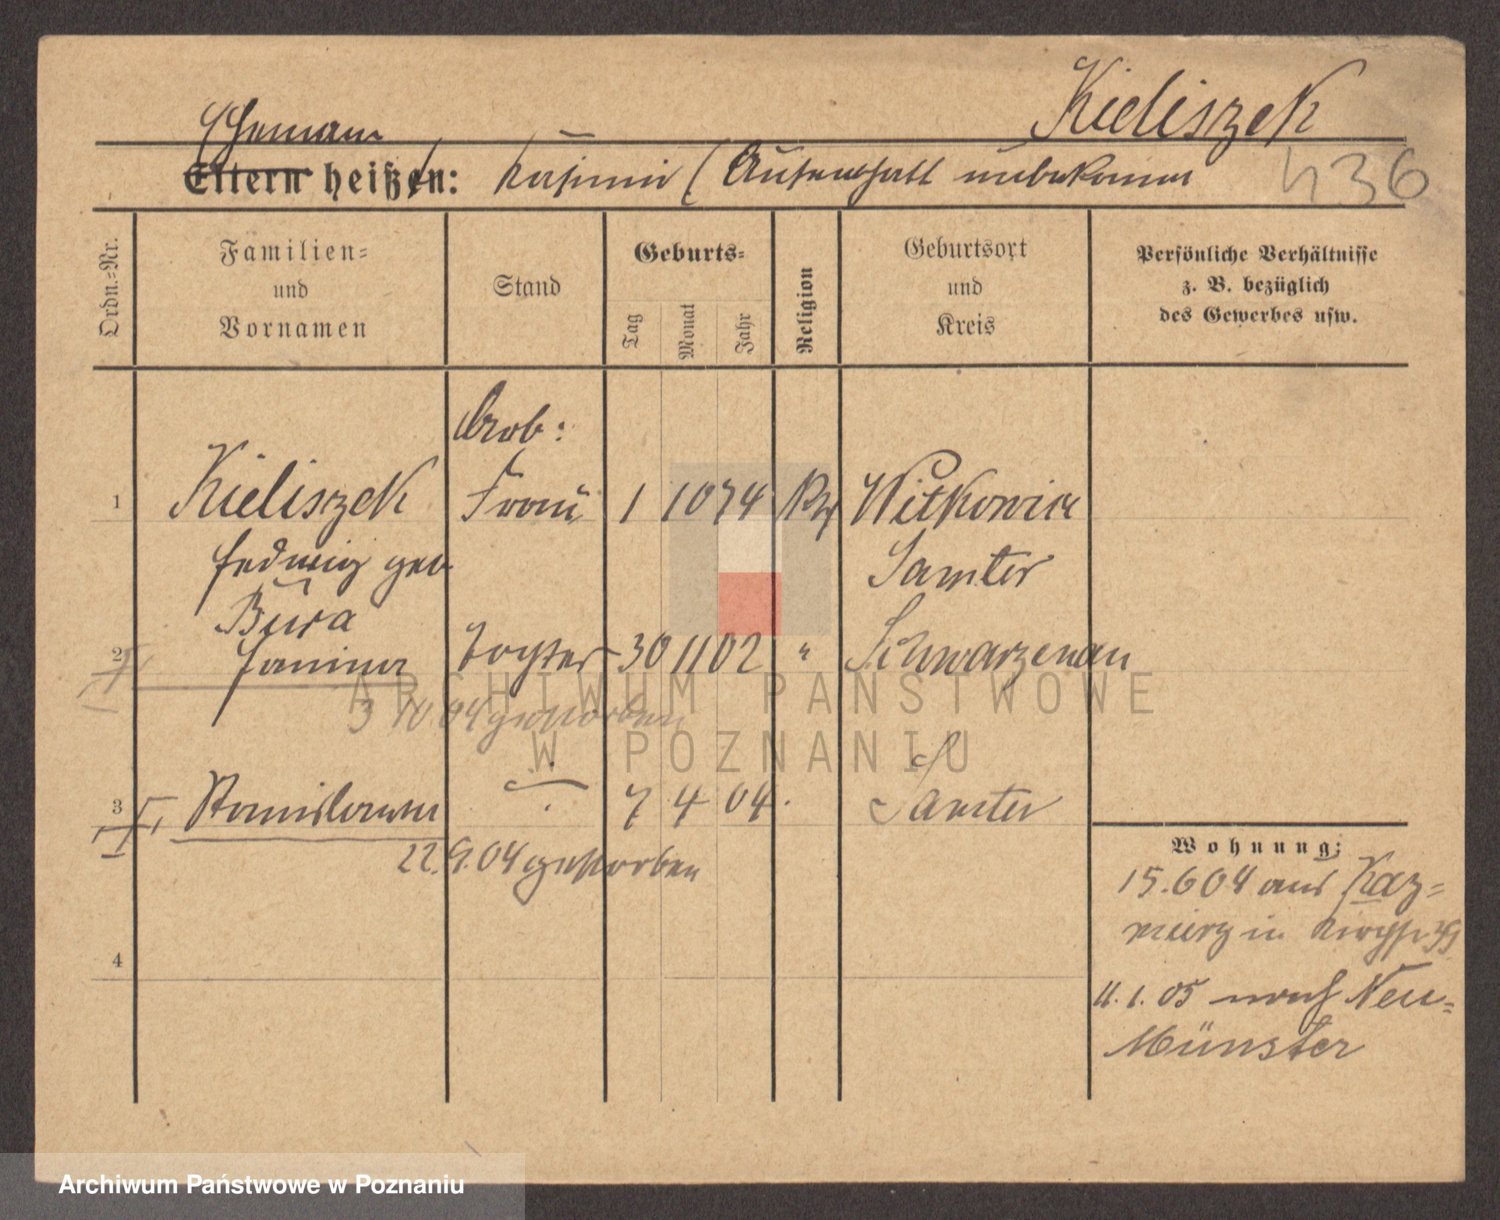 Kieliszek
Ehemann
Eltern heißen: Kasimir (Aufenthalt unbekannt
436
Ordn.=Nr.
Familien=
und
Vornamen
Stand
Geburts=
Tag
Monat
Jahr
Religion
Geburtsort
und
Kreis
Persönliche Verhältnisse
z. B. bezüglich
des Gewerbes usw.
Arb:
1 Kieliszek Frau 1 10 74 Witkowice
Hedwig geb Samter
Bura
2 Janina Tochter 30 11 02 " Schwarzenau
3 10.04 gestorben
3 Stanislawa 7 4 04 Samter
22.9.04 gestorben
4
Wohnung:
15.6 04 aus Kaz=
mierz in Kirchstr
11.1.05 nach Neu=
Münster
ARCHIWUM PAŃSTWOWE
W POZNANIU
Archiwum Państwowe w Poznaniu